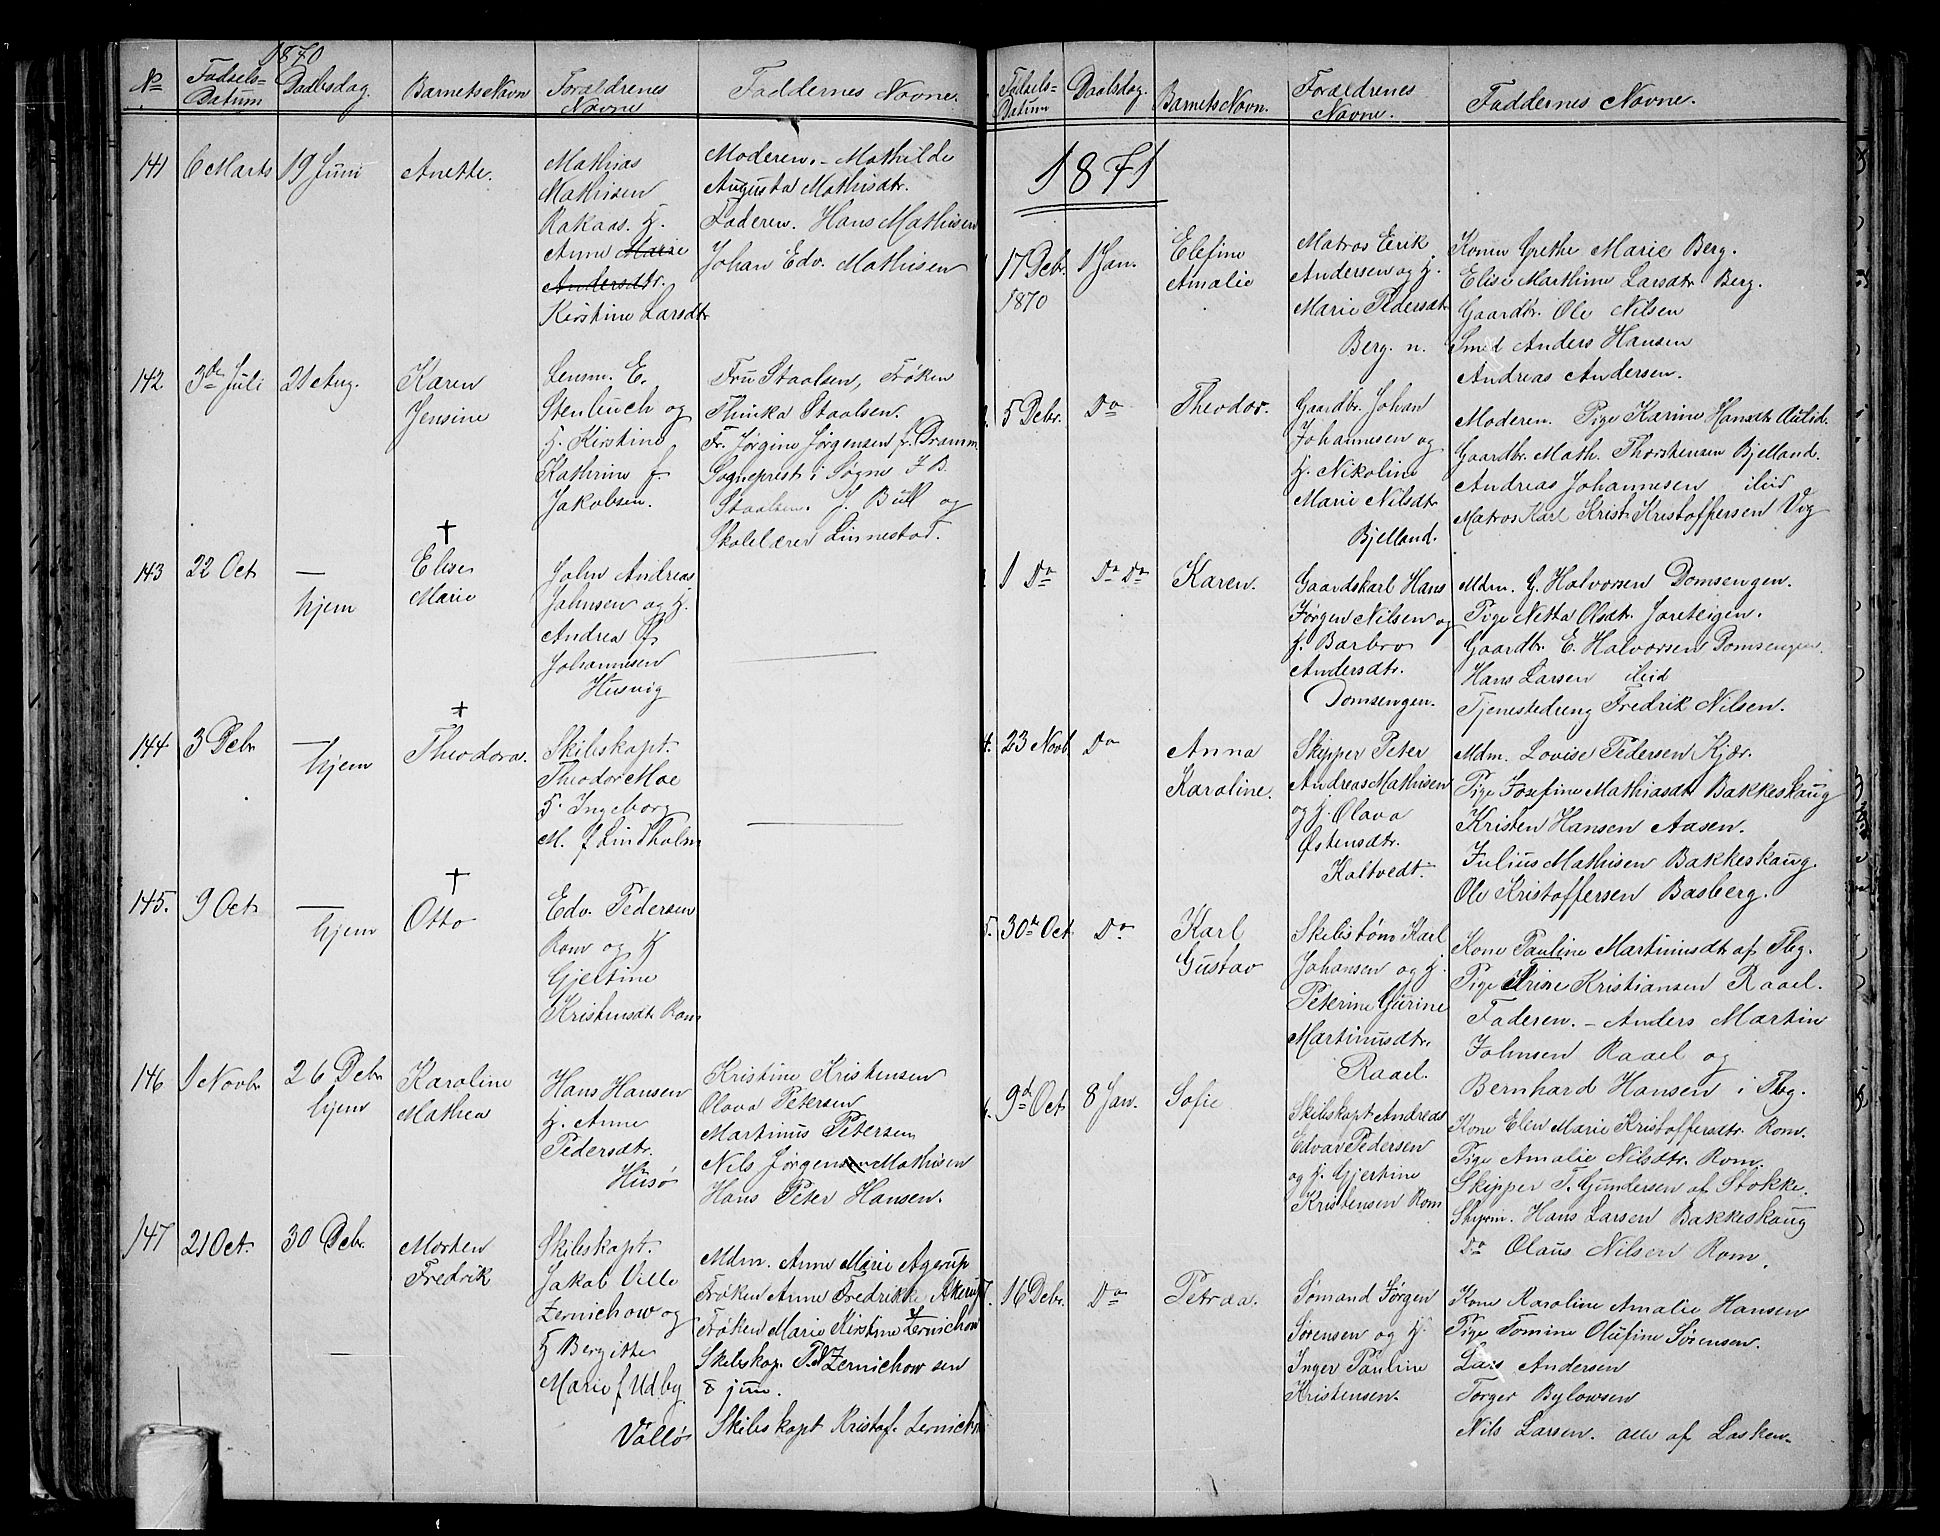 1870
No
Fødsels-
Datum
Daabsdag.
Barnets Navn
Forældrenes
Navne
Faddernes Navne.
141
6 Marts
19 Juni
Anette.
Mathias
Mathisen
Rakaas. H.
Anne Marie
Andersdtr.
Kirstine Larsdtr
Moderen. - Mathilde
Augusta Mathisdtr.
Faderen. Hans Mathisen
Johan Edv. Mathisen
142
3de Juli
21 Aug.
Karen
Jensine
Lensm. E.
Stenbuch og
H. Kirstine
Kathrine f.
Jakobsen.
Fru Staalsen, Frøken
Thinka Staalsen.
Fr. Jørgine Jørgensen fr. Dramm.
Sogneprest i Søgne J B.
Staalsen. J. Bull og
Skolelærer Linnestad.
143
22 Oct
— hjem
+
Elise
Marie
John Andreas
Johnsen og H.
Andrea f
Johannesen
Husvig
144
3 Debr
— hjem
+
Theodora.
Skibskapt.
Theodor Moe
H. Ingeborg
M. f Lindholm
145.
9 Oct
— hjem
+
Otto
Edv. Pedersen
Rom og H
Gjertine
Kristensdt. Rom
146
1 Novbr
26 Debr
hjem
Karoline
Mathea
Hans Hansen
H. Anne
Pedersdtr.
Husø
Kristine Kristensen
Olava Petersen
Martinus Petersen
Nils Jørgensen Mathisen
Hans Peter Hansen.
147
21 Oct.
30 Debr.
Morten
Fredrik
Skibskapt.
Jakob Ville
Zernichow og
H Bergitte
Marie f Udbye
Valløe
Mdm. Anne Marie Agerup
Frøken Anne Fredrikke Akerup
Frøken Marie Kirstine Zernichow
Skibskap. P. Zernichow sen
& jun.
Skibskapt Kristof. Zernichow
Fødsels-
Datum
Daabsdag.
Barnets Navn.
Forældrenes
Navne.
Faddernes Navne.
1871
17 Debr.
1870
1 Jan.
Elefine
Amalie
Matros Eerik
Andersen og H.
Marie Pedersdtr
Berg. n.
Kone Grethe Marie Berg.
Elise Marthine Larsdtr Berg.
Gaardbr. Ole Nilsen
Smed Anders Hansen
Andreas Andersen.
2.
5 Debr.
Do
Theodor.
Gaardbr. Johan
Johannesen og
H. Nikoline
Marie Nilsdtr
Bjelland.
Moderen. Pige Karine Hansdtr Aulid.
Gaardbr. Math. Thorstensen Bjelland.
Andreas Johannesen ibid
Matros Karl Krist. Kristoffersen Vig
1 Do
Do Do
Karen.
Gaardskarl Hans
Jørgen Nilsen og
H. Barbro
Andersdtr.
Domsengen.
Mdm. G. Halvorsen Domsengen.
Pige Netta Olsdtr. Jareteigen.
Gaardbr. E. Halvorsen Domsengen.
Hans Larsen ibid
Tjenestedreng Fredrik Nilsen.
4.
23 Novb
Do
Anna
Karoline.
Skipper Peter
Andreas Mathisen
og H. Olava
Østensdtr.
Kaltvedt.
Mdm. Lovise Pedersen Kjær.
Pige Josefine Mathiasdt Bakkeskaug
Kristen Hansen Aasen.
Julius Mathisen Bakkeskaug.
Ole Kristoffersen Basberg.
5.
30te Oct
Do
Karl
Gustav
Skibstøm Karl
Johansen og H.
Peterine Gurine
Martinusdtr.
Raael.
Kone Pauline Martinusdt af Tbg.
Pige Kristiansen Raael.
Faderen. - Anders Martin
Johnsen Raael og
Bernhard Hansen i Tbg.
6.
9de Oct
8 Jan.
Sofie
Skibskapt Andreas
Edvar Pedersen
og H. Gjertine
Kristensen Rom
Kone Elen Marie Kristoffersdtr. Rom.
Pige Amalie Nilsdtr. Rom.
Skipper T. Gundersen af Stokke.
Skipsm. Hans Larsen Bakkeskaug
Do Olaus Nilsen Rom.
7.
16 Debr.
Do
Petrea.
Sømand Jørgen
Sørensen og H.
Inger Pauline
Kristensen.
Kone Karoline Amalie Hansen
Pige Tomine Olufine Sørensen.
Lars Andersen
Torger Bylowsen
Nils Larsen. alle af Lasken.